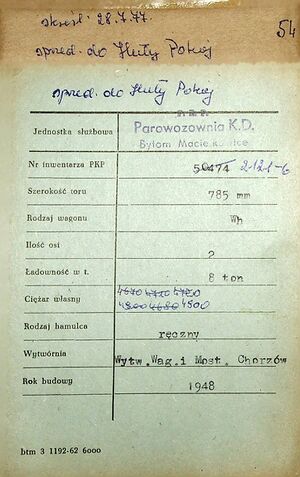 skreśl. 28.7.77. 54
sprzed. do Huty Pokój
sprzed. do Huty Pokój
P.K.P.
Jednostka służbowa Parowozownia K.D.
Bytom Macie kowice
Nr inwentarza PKP 50474 2-121-6
Szerokość toru 785 mm
Rodzaj wagonu Wh
Ilość osi 2
Ładowność w t. 8 ton
4670 4720 4720
Ciężar własny 4800 4680 4500
Rodzaj hamulca ręczny
Wytwórnia Wytw. Wag. i Most. Chorzów
Rok budowy 1948
btm 3 1192-62 6000